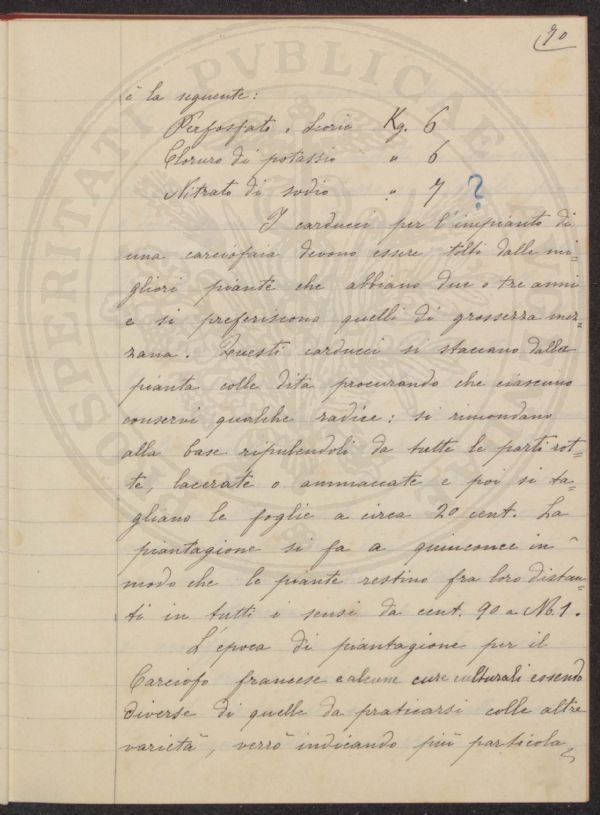 90
è la seguente:
Perfosfato o Scorie Kg. 6
Cloruro di potassio " 6
Nitrato di sodio " 7 ?
I carducci per l'impianto di
una carciofaia devono essere tolti dalle mi=
gliori piante che abbiano due o tre anni
e si preferiscono quelli di grossezza mez=
zana. Questi carducci si staccano dalla
pianta colle dita procurando che ciascuno
conservi qualche radice: si rimondano
alla base ripulendoli da tutte le parti rot=
te, lacerate o ammaccate e poi si ta=
gliano le foglie a circa 20 cent. La
piantagione si fa a quinconce in
modo che le piante restino fra loro distan=
ti in tutti i sensi da cent. 90 a M. 1.
L'epoca di piantagione per il
Carciofo francese e alcune cure culturali essendo
diverse di quelle da praticarsi colle altre
varietà, verrò indicando più particola=
PROSPERITATI PVBLICAE AVG